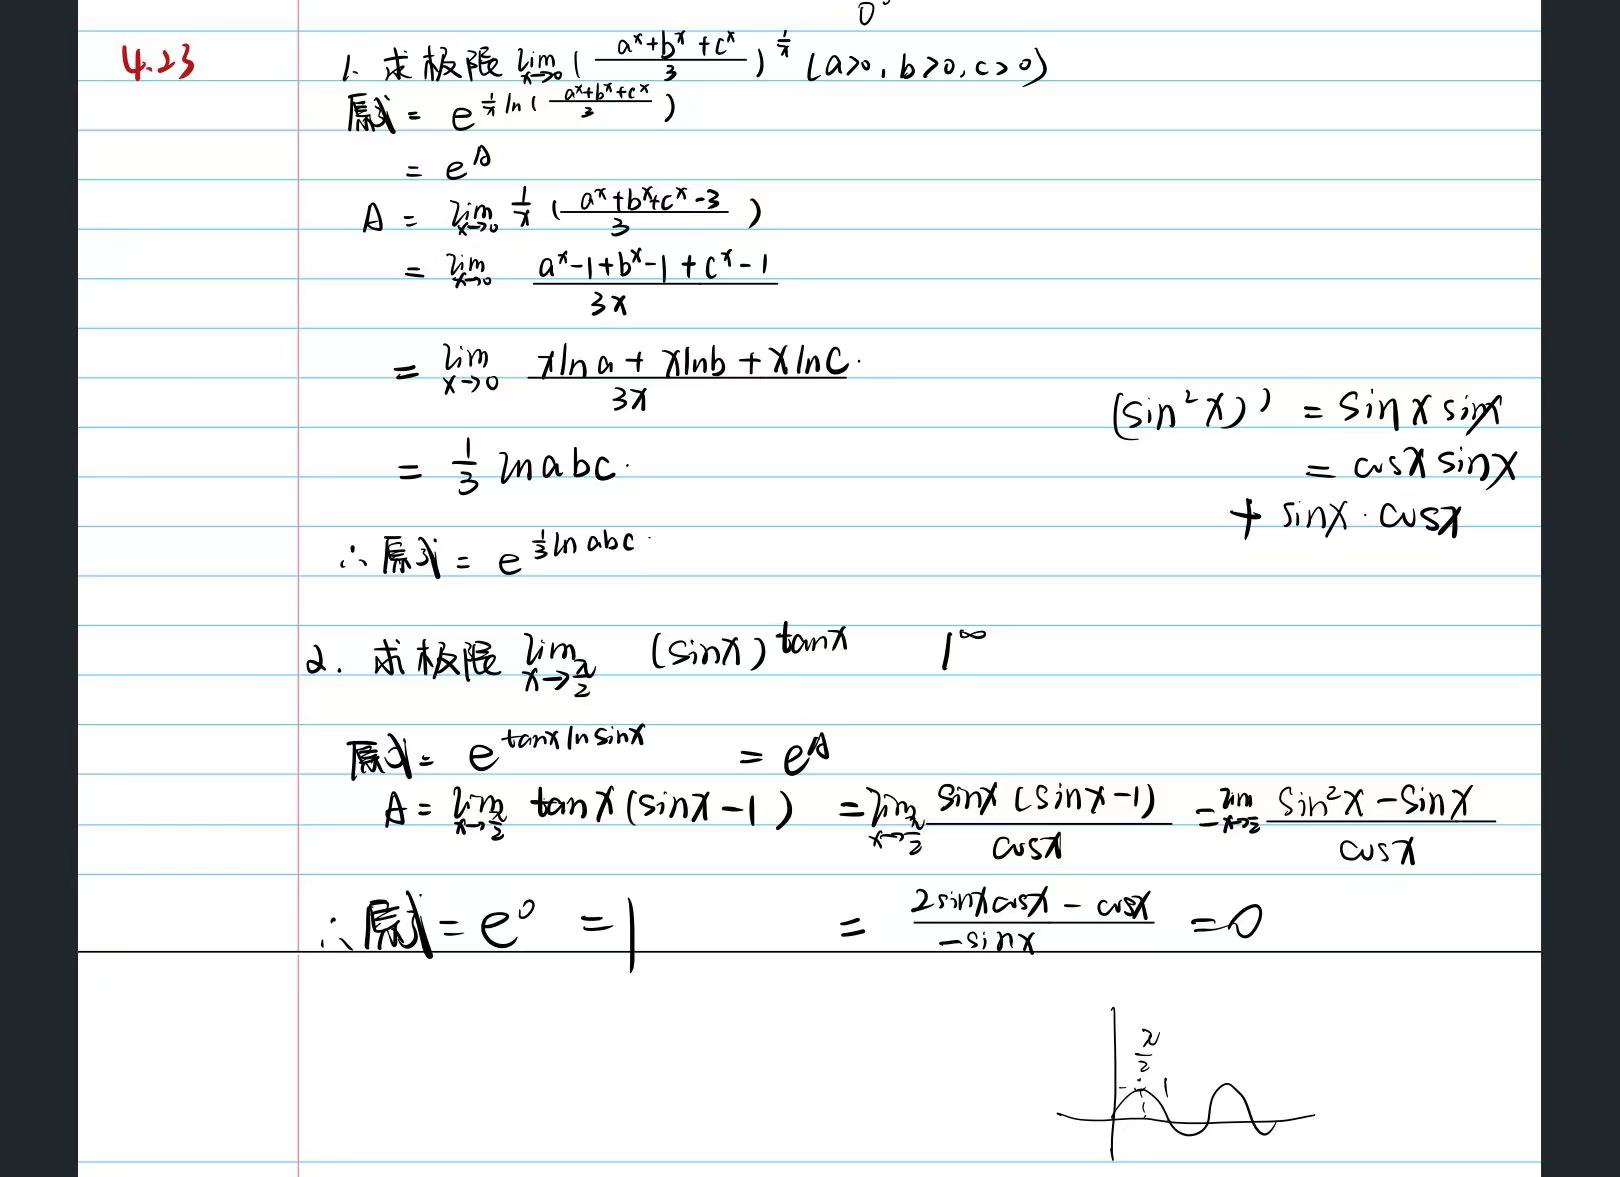 0
4.23
1. 求极限 lim x→0 ( (a^x+b^x+c^x)/3 )^(1/x) (a>0, b>0, c>0)
原式 = e^( 1/x ln( (a^x+b^x+c^x)/3 ) )
= e^A
A = lim x→0 1/x ( (a^x+b^x+c^x-3)/3 )
= lim x→0 (a^x-1+b^x-1+c^x-1)/(3x)
= lim x→0 (xlna+xlnb+xlnC)/(3x)
= 1/3 lnabc.
∴原式 = e^(1/3 ln abc)
(sin²x)' = sinx sinx
= cosx sinx
+ sinx·cosx
2. 求极限 lim x→π/2 (sinx)^tanx 1^∞
原式= e^(tanx ln sinx) = e^A
A = lim x→π/2 tanx(sinx-1) = lim x→π/2 sinx(sinx-1)/cosx = lim x→π/2 (sin²x-sinx)/cosx
= (2sinxcosx-cosx)/(-sinx) = 0
∴原式 = e^0 = 1
π/2
1